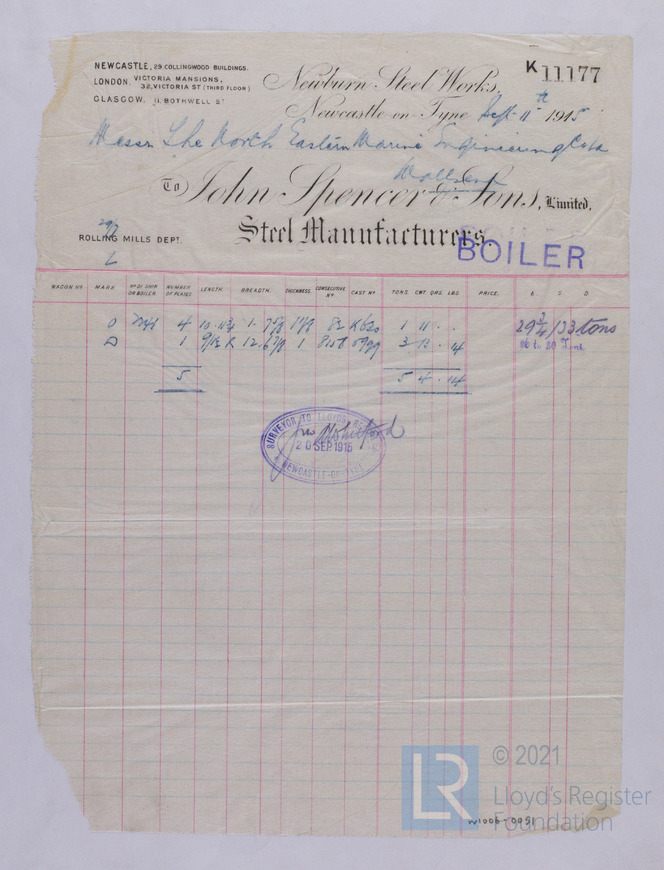 NEWCASTLE, 29 COLLINGWOOD BUILDINGS.
LONDON, VICTORIA MANSIONS,
32, VICTORIA ST (THIRD FLOOR)
GLASGOW, 11, BOTHWELL ST
K 11177
Newburn Steel Works,
Newcastle-on-Tyne Sept 11th 1915
Messrs The North Eastern Marine Engineering Co Ld
Wallsend
To John Spencer & Sons, Limited,
Steel Manufacturers.
ROLLING MILLS DEPT.
BOILER
WAGON No MARK No OF SHIP OR BOILER NUMBER OF PLATES LENGTH. BREADTH. THICKNESS. CONSECUTIVE No CAST No TONS. CWT. QRS. LBS. PRICE. £ S D
O 4 1 11 . . 29 3/4 / 33 tons
1 1 3 13 . 14
5 5 4 . 14
SURVEYOR TO LLOYD'S
20 SEP. 1915
NEWCASTLE-ON-TYNE
LR
© 2021
Lloyd's Register
Foundation
W1006-0051